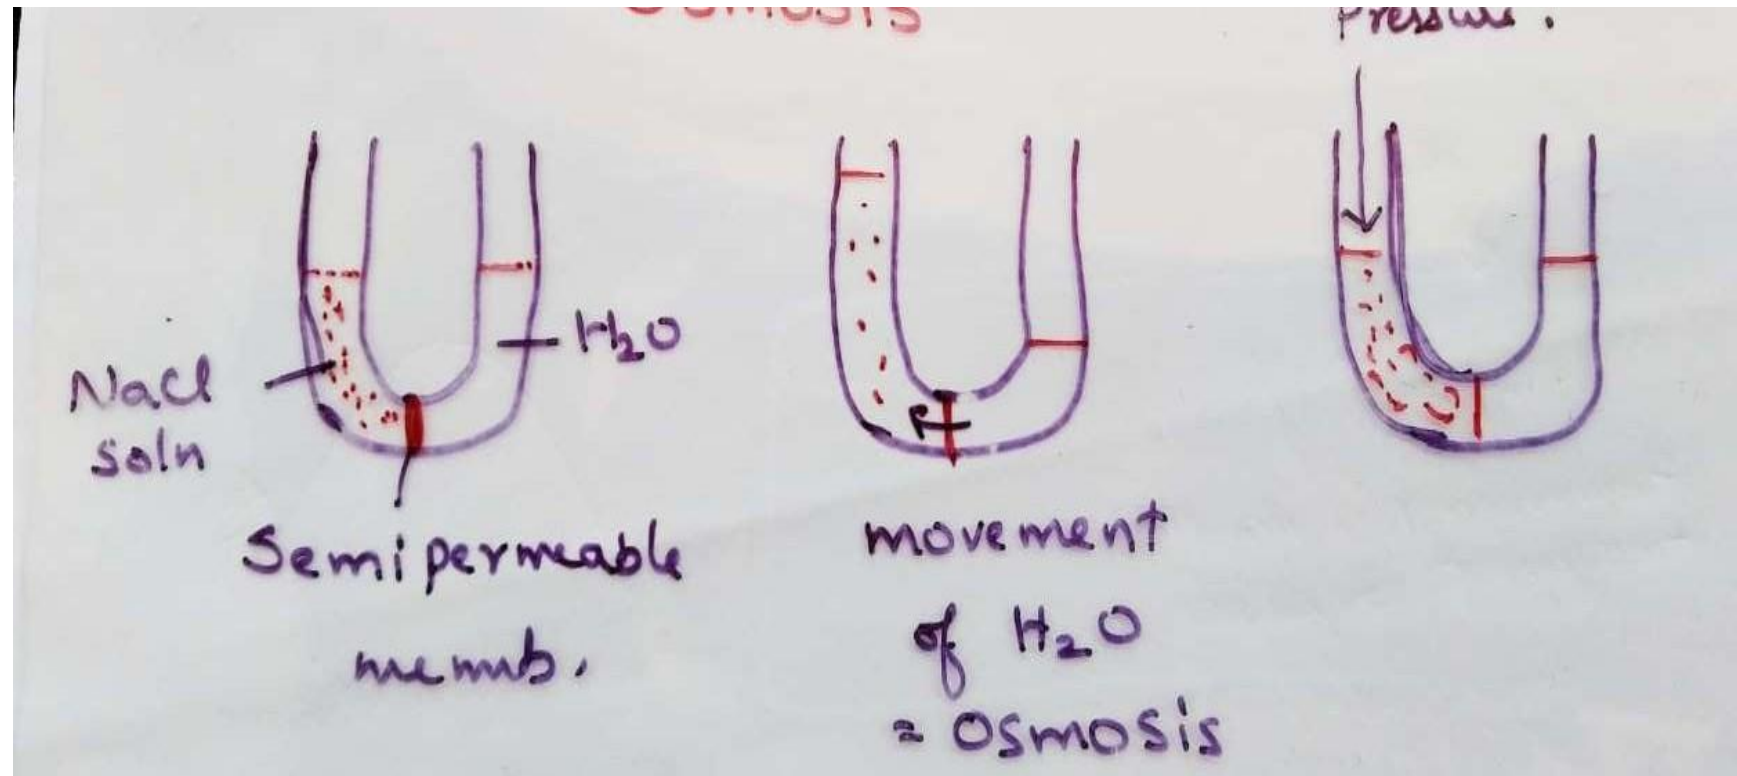 OSMOSIS
Pressure.
NaCl
soln
H₂O
Semipermeable
memb.
movement
of H₂O
= Osmosis